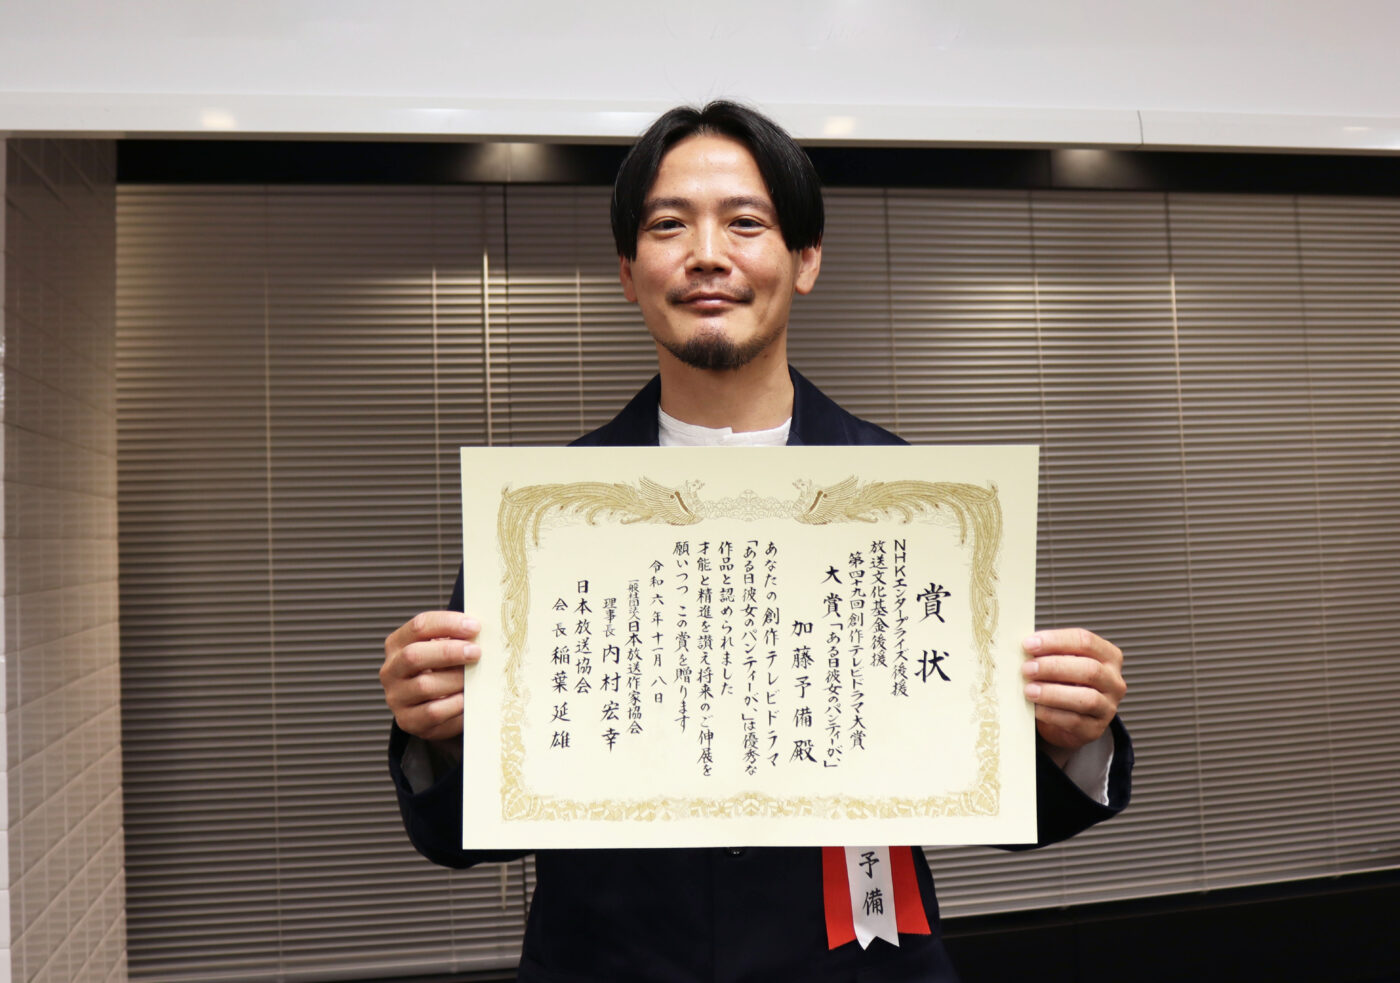 賞状
NHKエンタープライズ後援
放送文化基金後援
第四十九回創作テレビドラマ大賞
大賞「ある日彼女のパンティーが、」
加藤予備殿
あなたの創作テレビドラマ
「ある日彼女のパンティーが、」は優秀な
作品と認められました
才能と精進を讃え将来のご伸展を
願いつつこの賞を贈ります
令和六年十一月八日
一般社団法人日本放送作家協会
理事長内村宏幸
日本放送協会
会長稲葉延雄
予備